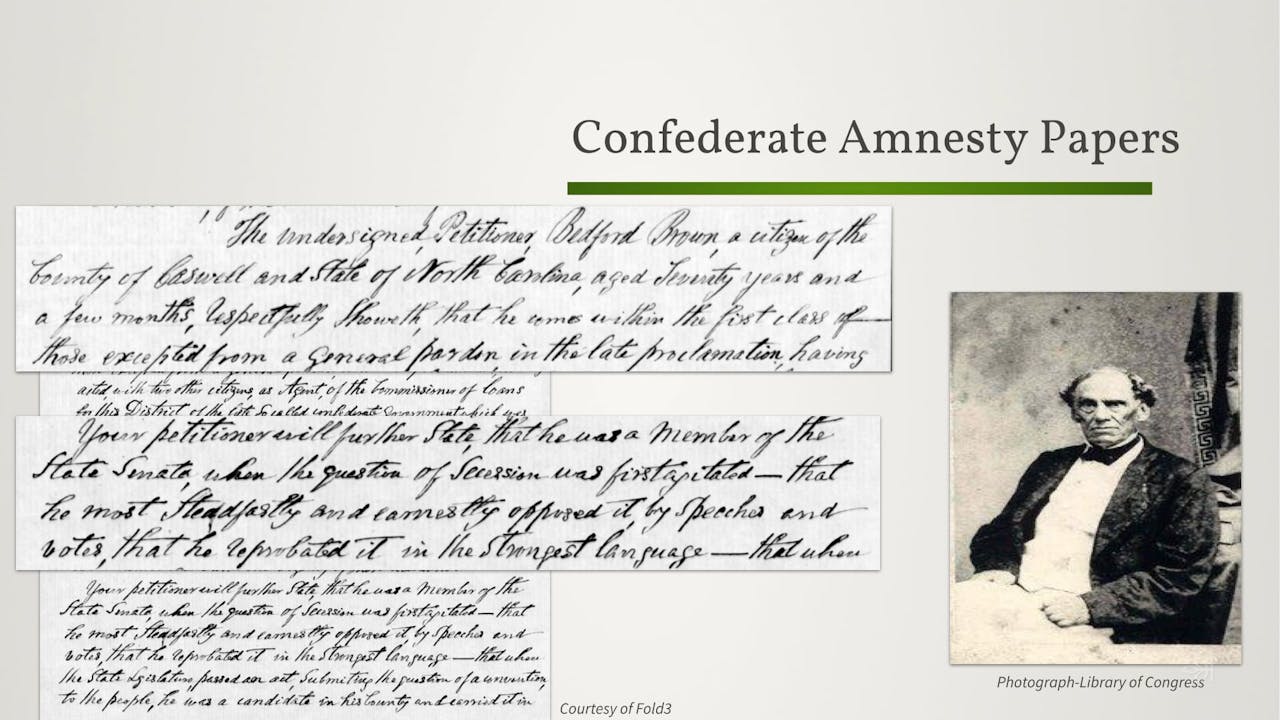 Confederate Amnesty Papers
The undersigned Petitioner, Bedford Brown, a citizen of the
County of Caswell and State of North Carolina, aged Seventy years and
a few months, respectfully Showeth, that he comes within the first class of
those excepted from a General pardon in the late proclamation, having
acted with two other citizens, as Agent, of the Commissioner of loans
in this District of the late So called confederate Government which was
Your petitioner will further State, that he was a Member of the
State Senate, when the question of Secession was first agitated — that
he most Steadfastly and earnestly opposed it, by Speeches and
votes, that he reprobated it in the Strongest language — that when
Your petitioner will further State, that he was a Member of the
State Senate, when the question of Secession was first agitated — that
he most Steadfastly and earnestly opposed it by Speeches and
votes, that he reprobated it in the Strongest language — that when
the State Legislature passed an act, Submitting the question of a convention,
to the people, he was a candidate in his County and carried it in
Photograph-Library of Congress
Courtesy of Fold3